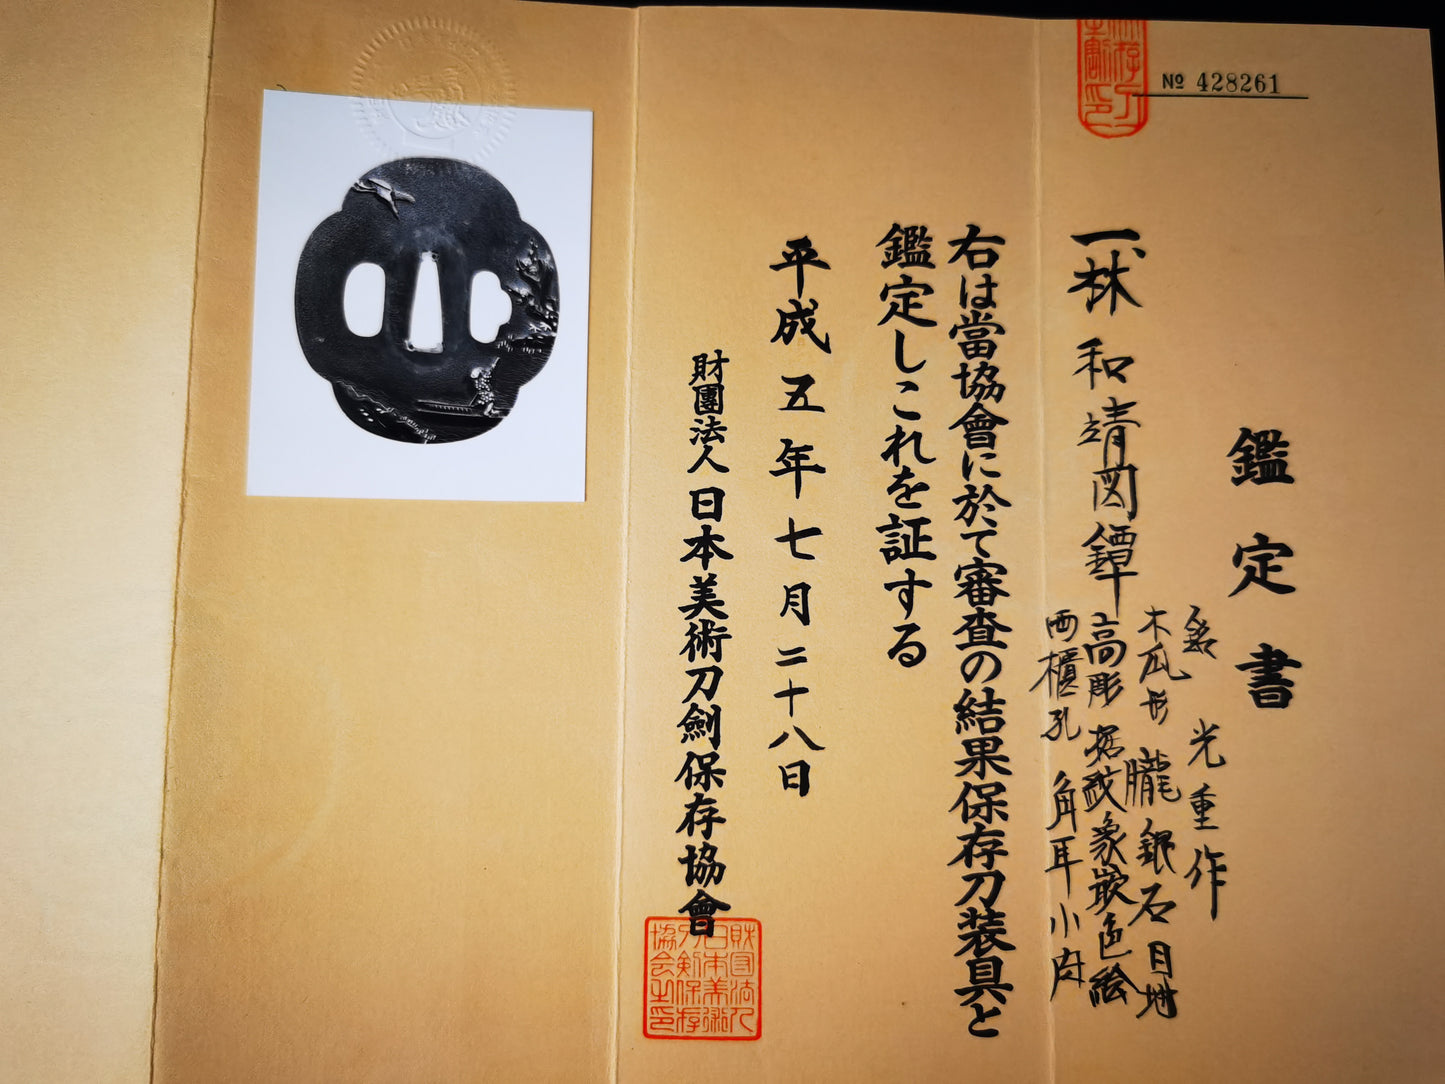 № 428261
鑑定書
一、林和靖図鐔
銘 光重作
木瓜形 朧銀石目地
高彫据紋象嵌色絵
両櫃孔 角耳小肉
右は當協會に於て審査の結果保存刀装具と
鑑定しこれを証する
平成五年七月二十八日
財團法人日本美術刀劍保存協會
財団法人
日本美術
刀剣保存
協会之印